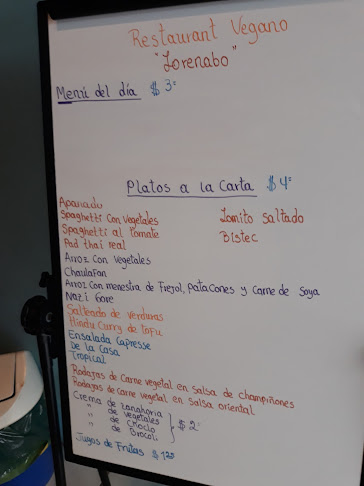 Restaurant Vegano
"Lorenabo"
Menú del día $ 3=
Platos a la Carta $ 4=
Apanado
Spaghetti con Vegetales
Spaghetti al Tomate
Pad thai real
Lomito Saltado
Bistec
Arroz con Vegetales
Chaulafan
Arroz con menestra de Frejol, Patacones y Carne de Soya
Nazi Gore
Salteado de verduras
Hindu Curry de tofu
Ensalada Capresse
De la Casa
Tropical
Rodajas de Carne vegetal en salsa de champiñones
Rodajas de Carne vegetal en Salsa oriental
Crema de zanahoria
" de vegetales
" de Choclo
" de Brocoli
} $ 2=
Jugos de Frutas $ 1.25